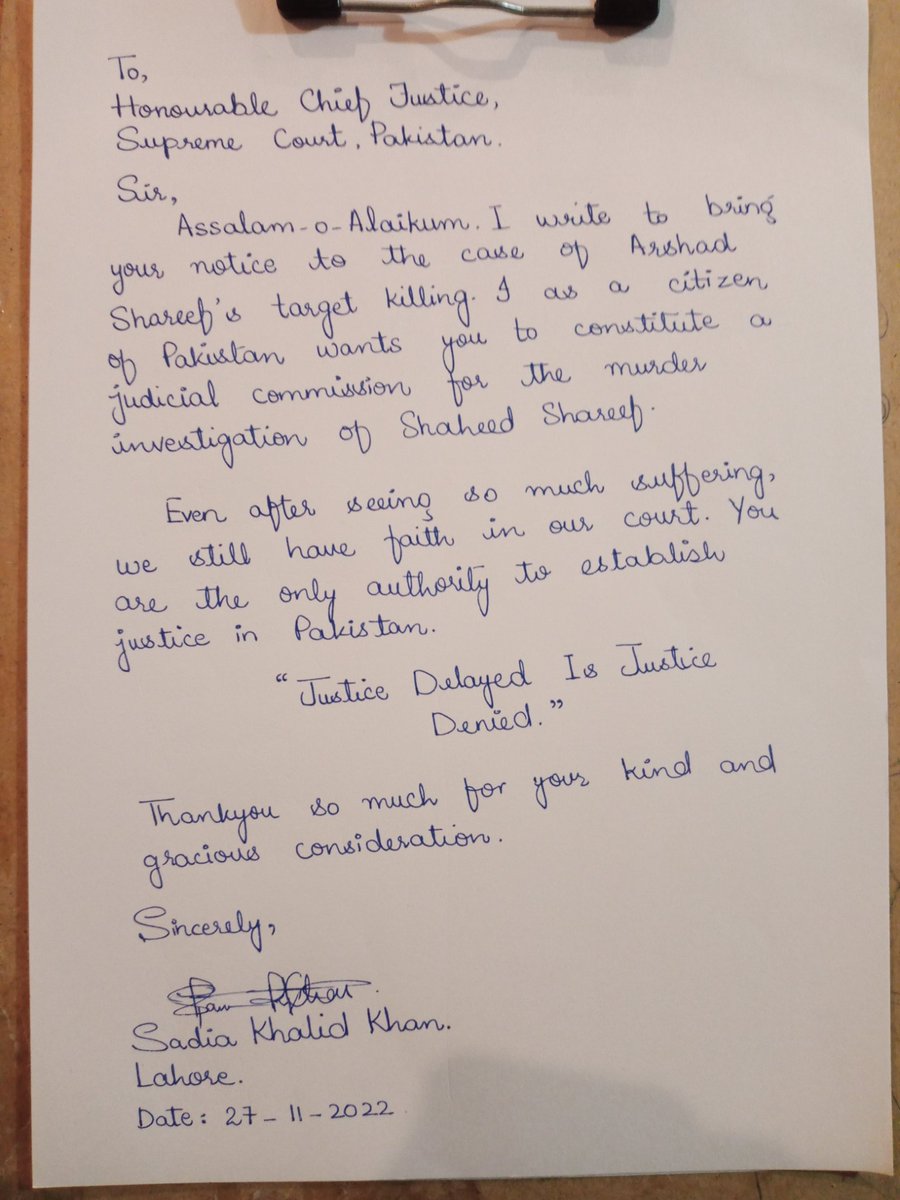 To,
Honourable Chief Justice,
Supreme Court, Pakistan.
Sir,
Assalam-o-Alaikum. I write to bring
your notice to the case of Arshad
Shareef's target killing. I as a citizen
of Pakistan wants you to constitute a
judicial commission for the murder
investigation of Shaheed Shareef.
Even after seeing so much suffering,
we still have faith in our court. You
are the only authority to establish
justice in Pakistan.
"Justice Delayed Is Justice
Denied."
Thankyou so much for your kind and
gracious consideration.
Sincerely,
Sadia Khalid Khan.
Lahore.
Date: 27-11-2022.